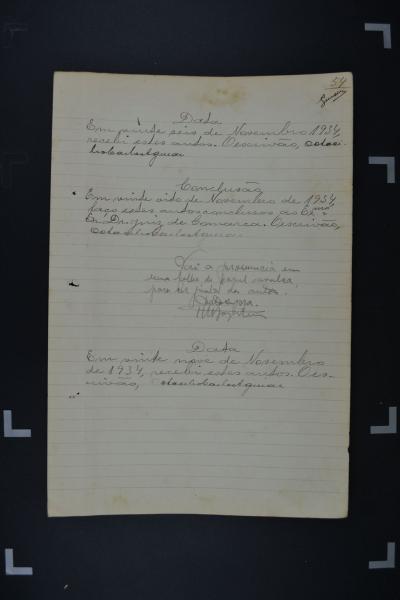 54
Data
Em vinte seis de Novembro 1934,
recebi estes autos. O escrivão,
Conclusão
Em vinte oito de Novembro de 1934
faço estes autos conclusos, ao Exmo.
Sr. Dr. Juiz de Comarca. O escrivão,
a pronuncia em
uma folha de papel
para ser junta aos autos.
Data
Em vinte nove de Novembro
de 1934, recebi estes autos. O es-
crivão,